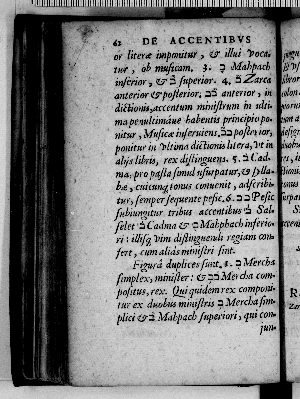 62 DE ACCENTIBVS
or literæ imponitur, & illui voca
tur, ob musicam. 3. ב Mahpach
inferior, & ב superior. 4. ב Zarca
anterior & posterior. ב anterior, in
dictionis, accentum ministrum in ulti
ma penultimáue habentis principio po
nitur, Musicæ inseruiens. ב posterior,
ponitur in vltima dictionis litera, vt in
alijs libris, rex distinguens. 5. ב Cad
ma, pro pasta simul usurpatur, & sylla
bæ, cuicunq; tonus conuenit, adscribi
tur, semper sequente pesic. 6. ב Pesic
subiungitur tribus accentibus ב Sal
selet ב Cadma & ב Mahpach inferio
ri: illisq; vim distinguendi regiam con
fert, cum aliàs ministri sint.
Figurâ duplices sunt. 1. ב Mercha
simplex, minister: & ב Mercha com
positus, rex. Qui quidem rex componi
tur ex duobus ministris ב Mercha sim
plici & ב Mahpach superiori, qui con
jun-